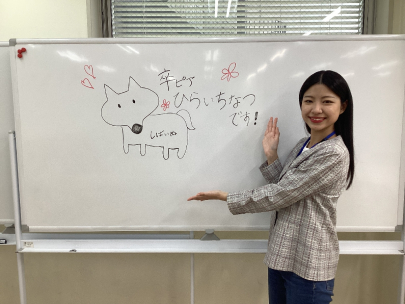 卒ピア
ひらいちなつ
です!
しばいぬ